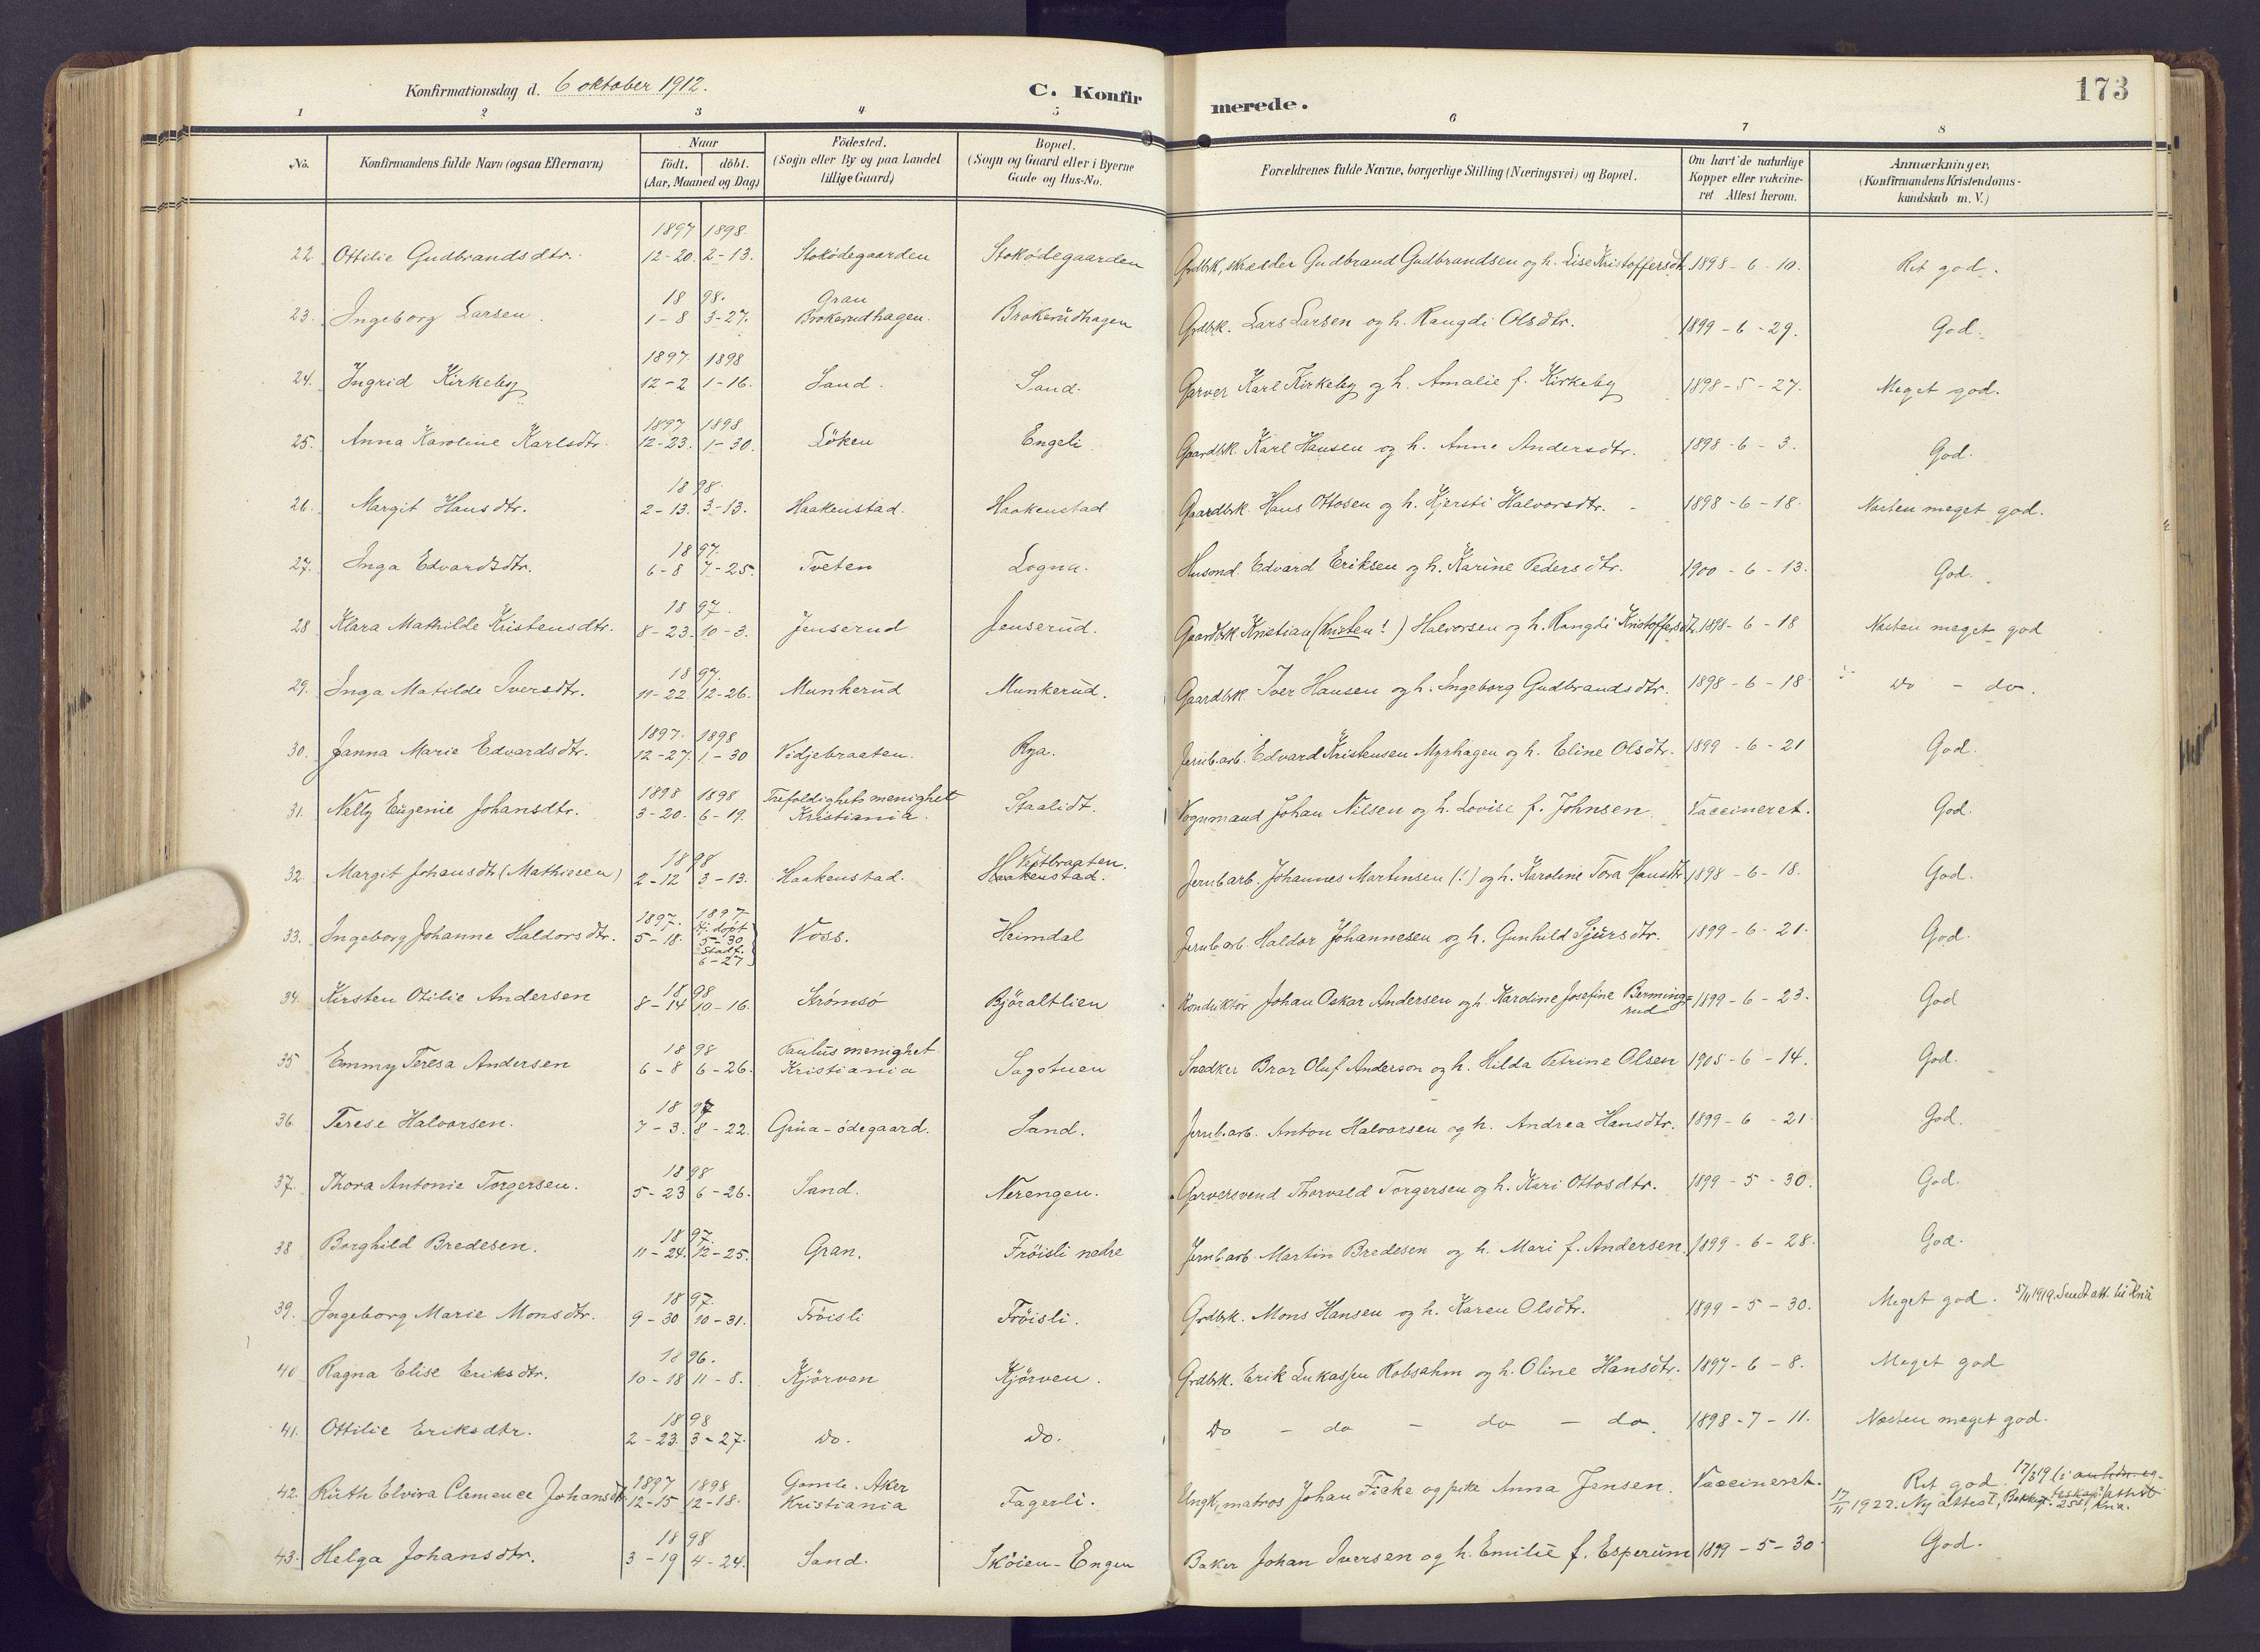 Konfirmationsdag d. 6 oktober 1912. C. Konfirmerede. 173
1 2 3 4 5 6 7 8
No. Konfirmandens fulde Navn (ogsaa Efternavn) Naar født. døbt. (Aar, Maaned og Dag) Fødested. (Sogn eller By og paa Landet tillige Gaard) Bopæl. (Sogn og Gaard eller i Byerne Gade og Hus-No. Forældrenes fulde Navne, borgerlige Stilling (Næringsvei) og Bopæl. Om havt de naturlige Kopper eller vakcineret Attest herom. Anmærkninger. (Konfirmandens Kristendomskundskab m. V.)
22 Ottilie Gudbrandsdtr. 1897 12-20. 1898 2-13. Stokødegaarden Stokødegaarden Grdbrk, skrædder Gudbrand Gudbrandsen og h. Lise Kristoffersdtr 1898-6-10. Ret god.
23. Ingeborg Larsen. 1898. 1-8 3-27. Gran Brokerudhagen. Brokerudhagen Grdbrk. Lars Larsen og h. Rangdi Olsdtr. 1899-6-29. God.
24. Ingrid Kirkeby 1897. 12-2 1898 1-16. Sand. Sand. Garver Karl Kirkeby og h. Amalie f. Kirkeby 1898-5-27. Meget god.
25. Anna Karoline Karlsdtr. 1897 12-23. 1898 1-30. Løken Engeli Gaardbrk. Karl Hansen og h. Anne Andersdtr. 1898-6-3. God.
26. Margit Hansdtr. 1898. 2-13. 3-13. Haakenstad. Haakenstad Gaardbrk. Hans Ottosen og h. Kjersti Halvorsdtr. 1898-6-18. Næsten meget god.
27. Inga Edvardsdtr. 1897. 6-8 7-25. Tveten Logna. Husmd. Edvard Eriksen og h. Karine Pedersdtr. 1900-6-13. God.
28 Klara Mathilde Kristensdtr. 1897. 8-23. 10-3. Jenserud Jenserud. Gaardbrk Kristian (Kristen!) Halvorsen og h. Rangdi Kristoffersdtr. 1898-6-18 Næsten meget god
29. Inga Matilde Iversdtr. 1897. 11-22 12-26. Munkerud Munkerud. Gaardbrk. Iver Hansen og h. Ingeborg Gudbrandsdtr. 1898-6-18 Do - do.
30. Janna Marie Edvardsdtr. 1897. 12-27. 1898 1-30 Vidjebraaten. Rya. Jernb.arb. Edvard Kristensen Myrhagen og h. Eline Olsdtr. 1899-6-21 God.
31. Nelly Eugenie Johansdtr. 1898 3-20. 1898 6-19. Trefoldighets menighet Kristiania. Staalidt. Vognmand Johan Nilsen og h. Lovise f. Johnsen. Vaccineret. God.
32. Margit Johansdtr (Mathiesen) 1898 2-12 3-13. Haakenstad. Vestbraaten. Haakenstad. Jernb.arb. Johannes Martinsen (!) og h. Karoline Tora Hansdtr 1898-6-18. God.
33. Ingeborg Johanne Haldorsdtr. 1897. 5-18. 1897 Hj. døpt 5-30. Stadf. 6-27 Voss. Heimdal Jernb.arb. Haldor Johannesen og h. Gunhild Sjursdtr. 1899-6-21. God.
34. Kirsten Otilie Andersen 1898 8-14 10-16. Strømsø Bjøraltlien Konduktør Johan Oskar Andersen og h. Karoline Josefine Bermingrud 1899-6-23. God
35 Emmy Teresa Andersen 1898 6-8 6-26. Paulus menighet Kristiania Sagstuen Snedker Bror Oluf Anderson og h. Hilda Petrine Olsen 1905-6-14. God.
36. Terese Halvorsen. 1897 7-3. 8-22. Grua-ødegaard. Sand. Jernb.arb. Anton Halvorsen og h. Andrea Hansdtr. 1899-6-21. God.
37. Thora Antonie Torgersen. 1898 5-23 6-26. Sand. Nerengen. Garversvend Thorvald Torgersen og h. Kari Ottosdtr. 1899-5-30. God.
38 Borghild Bredesen. 1897. 11-24. 12-25. Gran. Frøisli nedre Jernb.arb. Martin Bredesen og h. Mari f. Andersen. 1899-6-28. God.
39. Ingeborg Marie Monsdtr. 1897. 9-30 10-31. Frøisli Frøisli. Grdbrk. Mons Hansen og h. Karen Olsdtr. 1899-5-30. Meget god. 5/11 1919. Sendt att. til Kria
40 Ragna Elise Eriksdtr. 1896. 10-18 11-8. Kjørven Kjørven. Grdbrk. Erik Lukassen Robsahm og h. Oline Hansdtr. 1897-6-8. Meget god
41. Ottilie Eriksdtr. 1898 2-23. 3-27. Do. Do. Do - do - do - do. 1898-7-11. Næsten meget god.
42. Ruth Elvira Clemence Johansdtr. 1897 12-15 1898 12-18. Gamle Aker Kristiania Fagerli. Ungk, matros Johan Fiske og pike Anna Jensen. Vaccineret. Ret god. 17/11 1922. Ny attest, Kria.
43. Helga Johansdtr. 1898 3-19 4-24. Sand. Skøien-Engen Baker Johan Iversen og h. Emilie f. Esperum 1899-5-30 God.